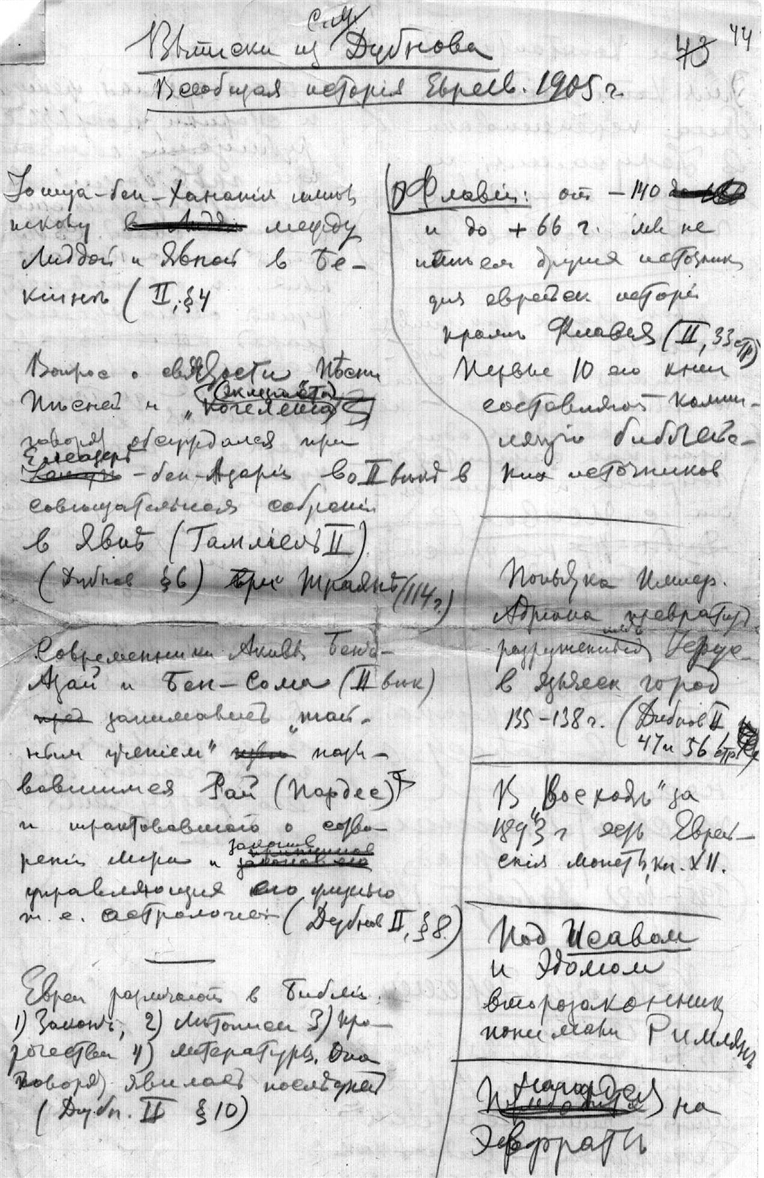 44
43
С.М.
Выписки из Дубнова
Всеобщая исторія Евреев. 1905 г.
Іошуа-бен-Хананія имѣл
школу между
Лиддой и Явной в Бе-
кіинѣ (II, §4
Вопрос о святости Пѣсни
Пѣсней и „Когелета
(Екклезіаста)
говоря обсуждался при
Елеазарѣ
-бен-Азаріи во II вѣкѣ в
совѣщательном собраніи
в Явнѣ (Гамліель II)
(Дубнов §6) при Траянѣ (114 г.)
Современники Акивы Бенъ-
Азай и Бен-Сома (II вѣк)
занимались „тай-
ным ученіем" назы-
вавшимся Рай (Пардес)
и трактовавшаго о сотво-
реніи міра и
законов
управляющих его жизнью
т. е. астрологіей (Дубнов II, §8.)
Евреи различают в Библіи:
1) Законъ, 2) Лѣтописи 3) Про-
рочества 4) литературы. Она
говоря явилась послѣдней
(Дубн. II §10)
Флавій: от –140
и до +66 г. мы не
имѣем других источник.
для еврейск исторіи
кромѣ Флавія (II, 33 стр)
Первые 10 его книг
составляют компи-
ляцію библейс-
ких источников
Попытка Импер.
Адріана превратить
разрушенный Іеруса-
лимъ
в языческ город
135–138 г. (Дубнов II
47 и 56 стр.
В „Восходѣ" за
1893 г есть Еврей-
скія монеты, кн. XII.
Под Исавом
и Эдомом
второзаконник
понимали Римлянъ
Нагардея на
Эфратѣ